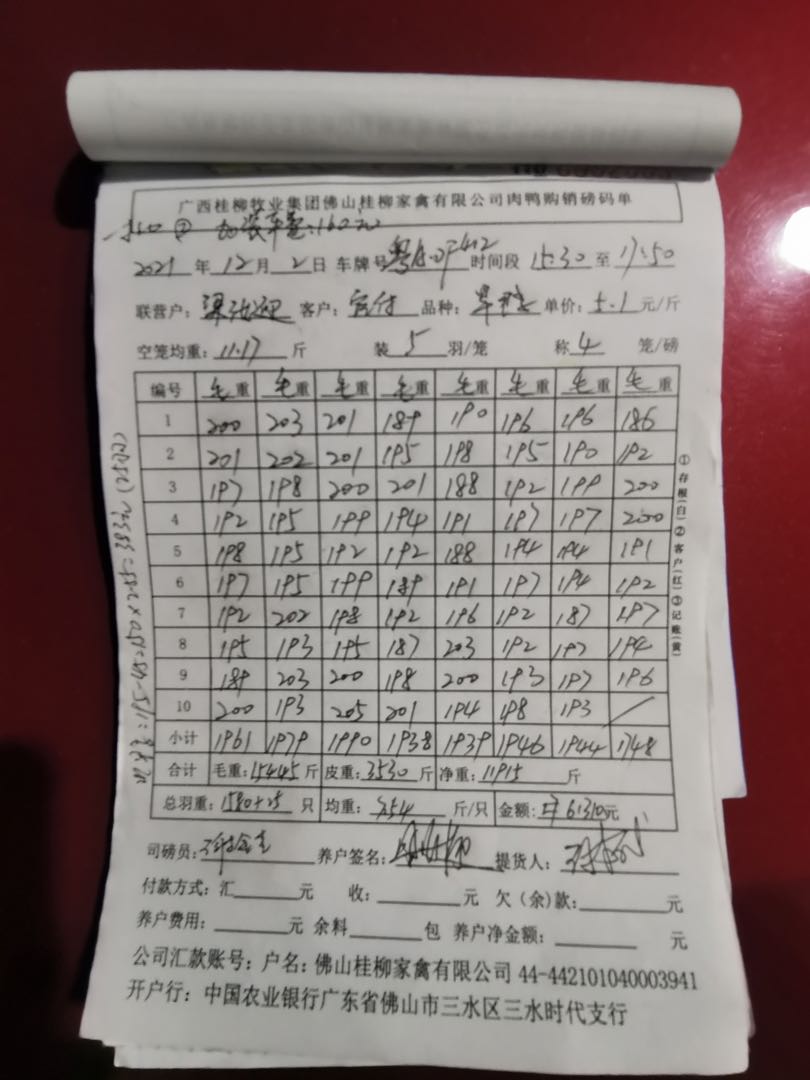 广西桂柳牧业集团佛山桂柳家禽有限公司肉鸭购销磅码单
加装车 160元
2021 年 12 月 2 日 车牌号 时间段 15:30 至 17:50
联营户: 客户: 品种: 单价: 5.1 元/斤
空笼均重: 11.17 斤 装 5 羽/笼 称 4 笼/磅
编号 毛重 毛重 毛重 毛重 毛重 毛重 毛重 毛重
1 200 203 201 189 190 196 196 186
2 201 202 201 195 198 195 190 192
3 197 198 200 201 188 192 199 200
4 192 195 199 194 191 197 197 200
5 198 195 192 192 188 194 194 191
6 197 195 199 189 191 197 194 192
7 192 202 198 192 196 192 187 197
8 195 193 195 187 203 192 197 194
9 189 203 200 198 200 193 197 196
10 200 193 205 201 194 198 193 /
小计 1961 1979 1990 1938 1939 1946 1944 1748
合计 毛重: 15445 斤 皮重: 3530 斤 净重: 11915 斤
总羽重: 1580+25 只 均重: 7.54 斤/只 金额: 61310元
司磅员: 养户签名: 提货人:
付款方式: 汇 元 收: 元 欠(余)款: 元
养户费用: 元 余料 包 养户净金额: 元
公司汇款账号: 户名: 佛山桂柳家禽有限公司 44-442101040003941
开户行: 中国农业银行广东省佛山市三水区三水时代支行
①存根(白)②客户(红)③记账(黄)